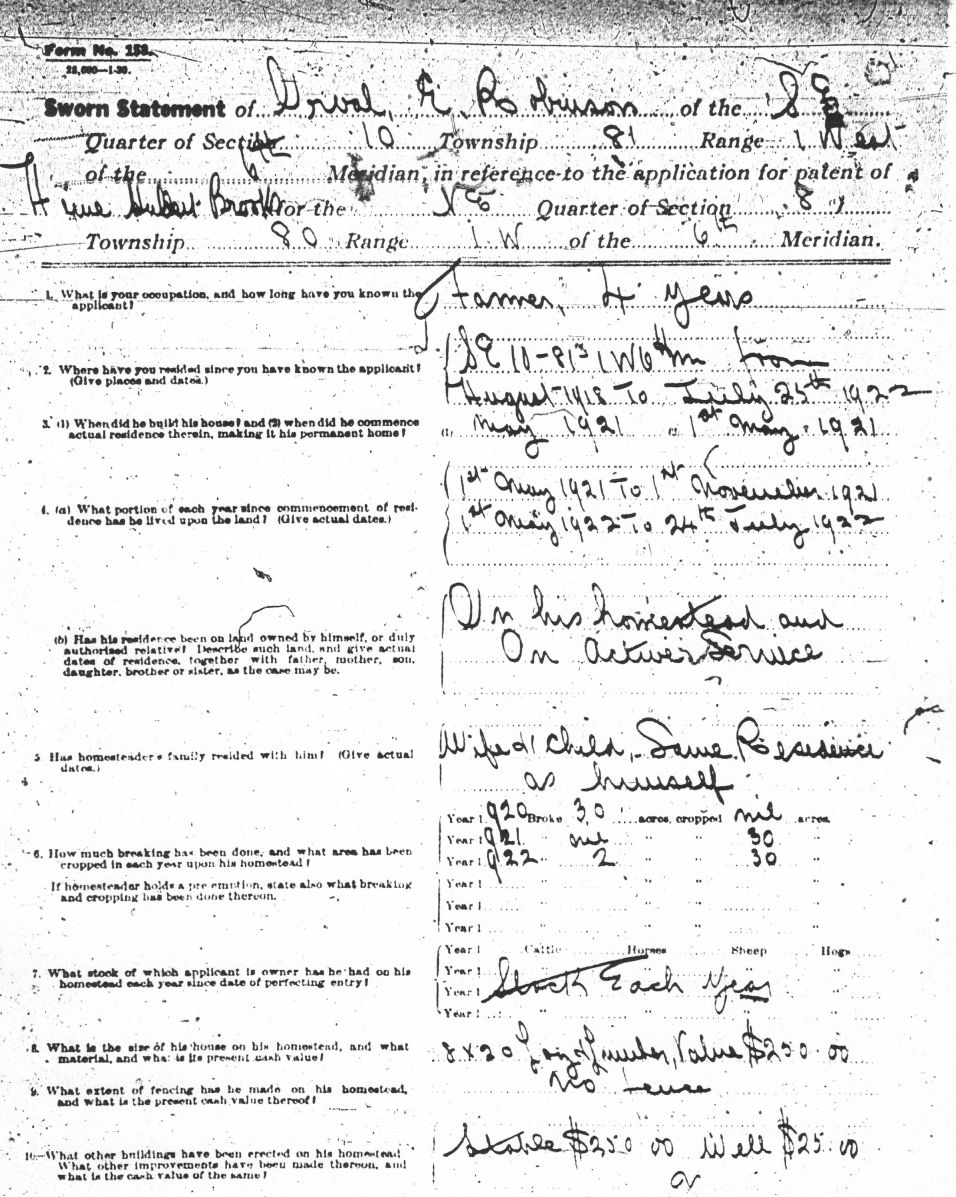 Form No. 153.
25,000—1-20.
Sworn Statement of Orval E. Robinson of the SE
Quarter of Section 10 Township 81 Range 1 West
of the 6th Meridian, in reference to the application for patent of
Hubert Brooks for the NE Quarter of Section 8
Township 80 Range 1 W of the 6th Meridian.
1. What is your occupation, and how long have you known the applicant?
Farmer, 4 Years
2. Where have you resided since you have known the applicant?
(Give places and dates.)
SE 10-81-1 W6th m from
August 1918 To July 25th 1922
3. (1) When did he build his house? and (2) when did he commence
actual residence therein, making it his permanent home?
(1) May 1921 (2) 1st May 1921
4. (a) What portion of each year since commencement of resi-
dence has he lived upon the land? (Give actual dates.)
1st May 1921 To 1st November 1921
1st May 1922 To 24th July 1922
(b) Has his residence been on land owned by himself, or duly
authorised relative? Describe such land, and give actual
dates of residence, together with father, mother, son,
daughter, brother or sister, as the case may be.
On his homestead and
On Active Service
5. Has homesteader's family resided with him? (Give actual
dates.)
Wife & 1 Child, Same Residence
as himself
6. How much breaking has been done, and what area has been
cropped in each year upon his homestead?
If homesteader holds a pre-emption, state also what breaking
and cropping has been done thereon.
Year 1920 Broke 30 acres, cropped nil acres
Year 1921 nil " " 30 "
Year 1922 " 2 " " 30 "
Year 1 " " " "
Year 1 " " " "
Year 1 " " " "
7. What stock of which applicant is owner has he had on his
homestead each year since date of perfecting entry?
Year 1 Cattle Horses Sheep Hogs
Year 1
Year 1 Stock Each Year
Year 1 " " " "
8. What is the size of his house on his homestead, and what
material, and what is its present cash value?
8 x 20 Log & Lumber, Value $250.00
9. What extent of fencing has he made on his homestead,
and what is the present cash value thereof?
No Fence
10.—What other buildings have been erected on his homestead?
What other improvements have been made thereon, and
what is the cash value of the same?
Stable $250.00 Well $25.00